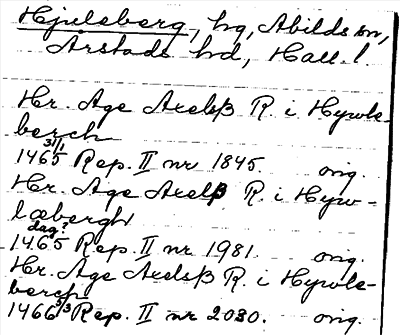 Hjuleberg, hg, Abilds sn,
Årstads hd, Hall. l.
Hr. Åge Axelsß R. i Hywle-
berch
1465 31/1 Rep. II nr 1845. orig.
Hr. Åge Axelß R. i Hyw-
læbergh
1465 dag? Rep. II nr 1981. orig.
Hr. Åge Axelsß R. i Hywle-
berch
1466 3/3 Rep. II nr 2030. orig.